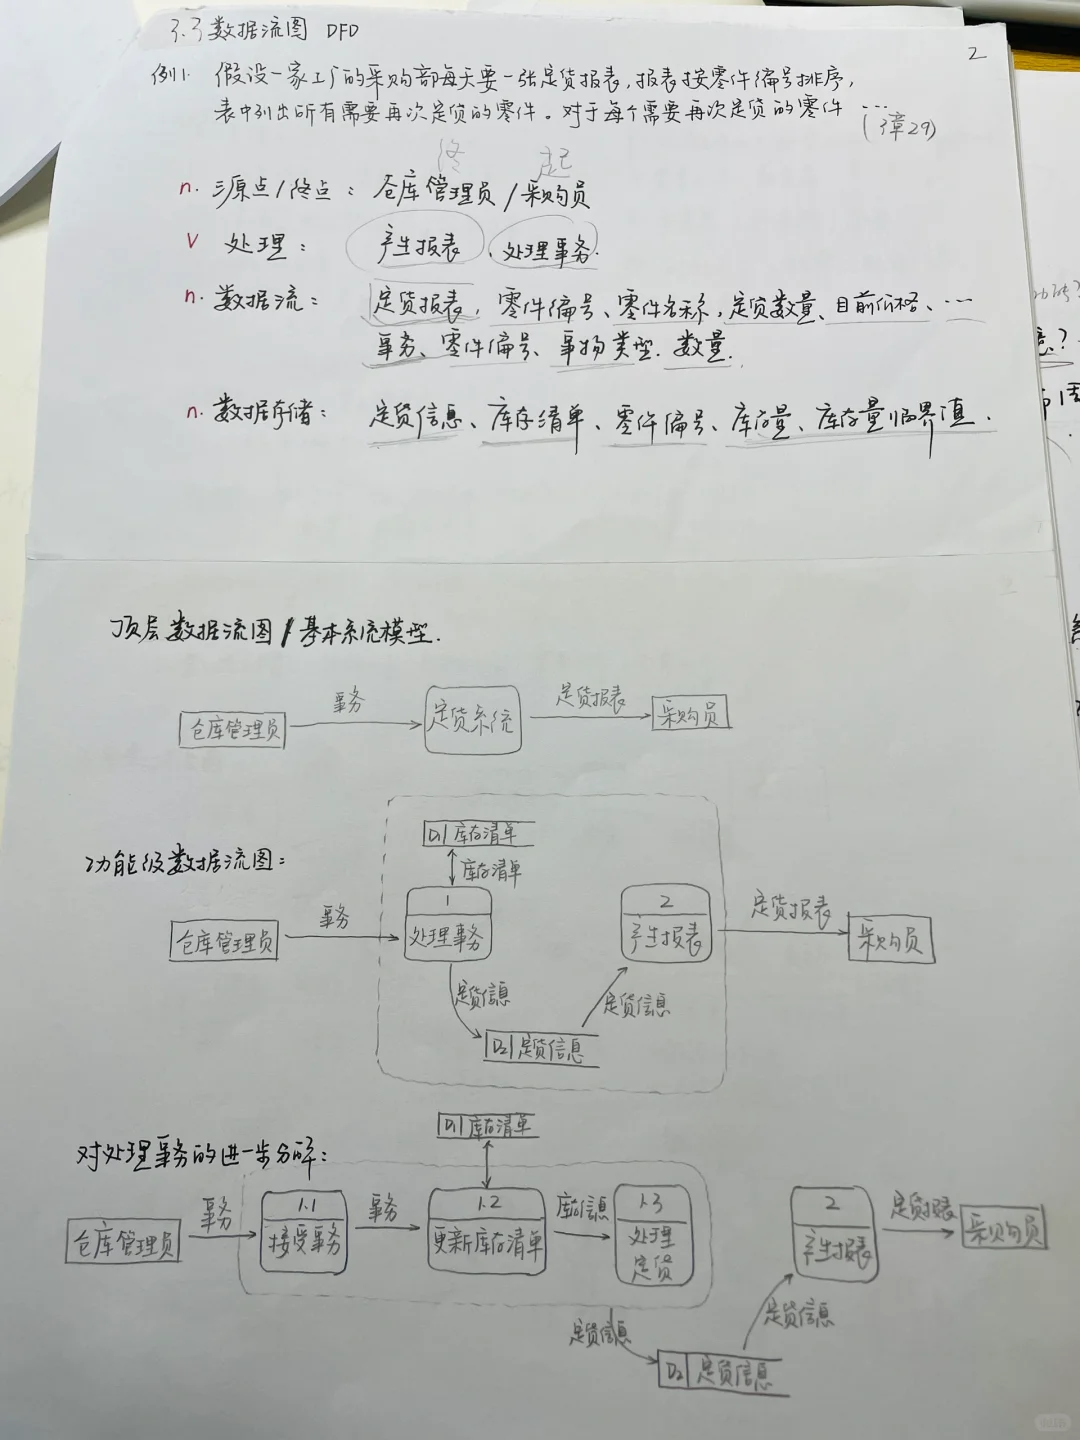 3.3 数据流图 DFD
2
例1. 假设一家工厂的采购部每天要一张定货报表,报表按零件编号排序,
表中列出所有需要再次定货的零件。对于每个需要再次定货的零件 …
终 起
n. 源点/终点: 仓库管理员/采购员
V 处理: 产生报表、处理事务.
n. 数据流: 定货报表, 零件编号、零件名称,定货数量、目前价格、…
事务、零件编号、事物类型. 数量.
n. 数据存储: 定货信息、库存清单、零件编号、库存量、库存量临界值.
顶层数据流图/基本系统模型.
仓库管理员 事务 定货系统 定货报表 采购员
D1 库存清单
功能级数据流图: 库存清单
仓库管理员 事务 1 处理事务 2 产生报表 定货报表 采购员
定货信息 定货信息
D2 定货信息
D1 库存清单
对处理事务的进一步分解:
仓库管理员 事务 1.1 接受事务 事务 1.2 更新库存清单 库存信息 1.3 处理定货 2 产生报表 定货报表 采购员
定货信息 定货信息
D2 定货信息